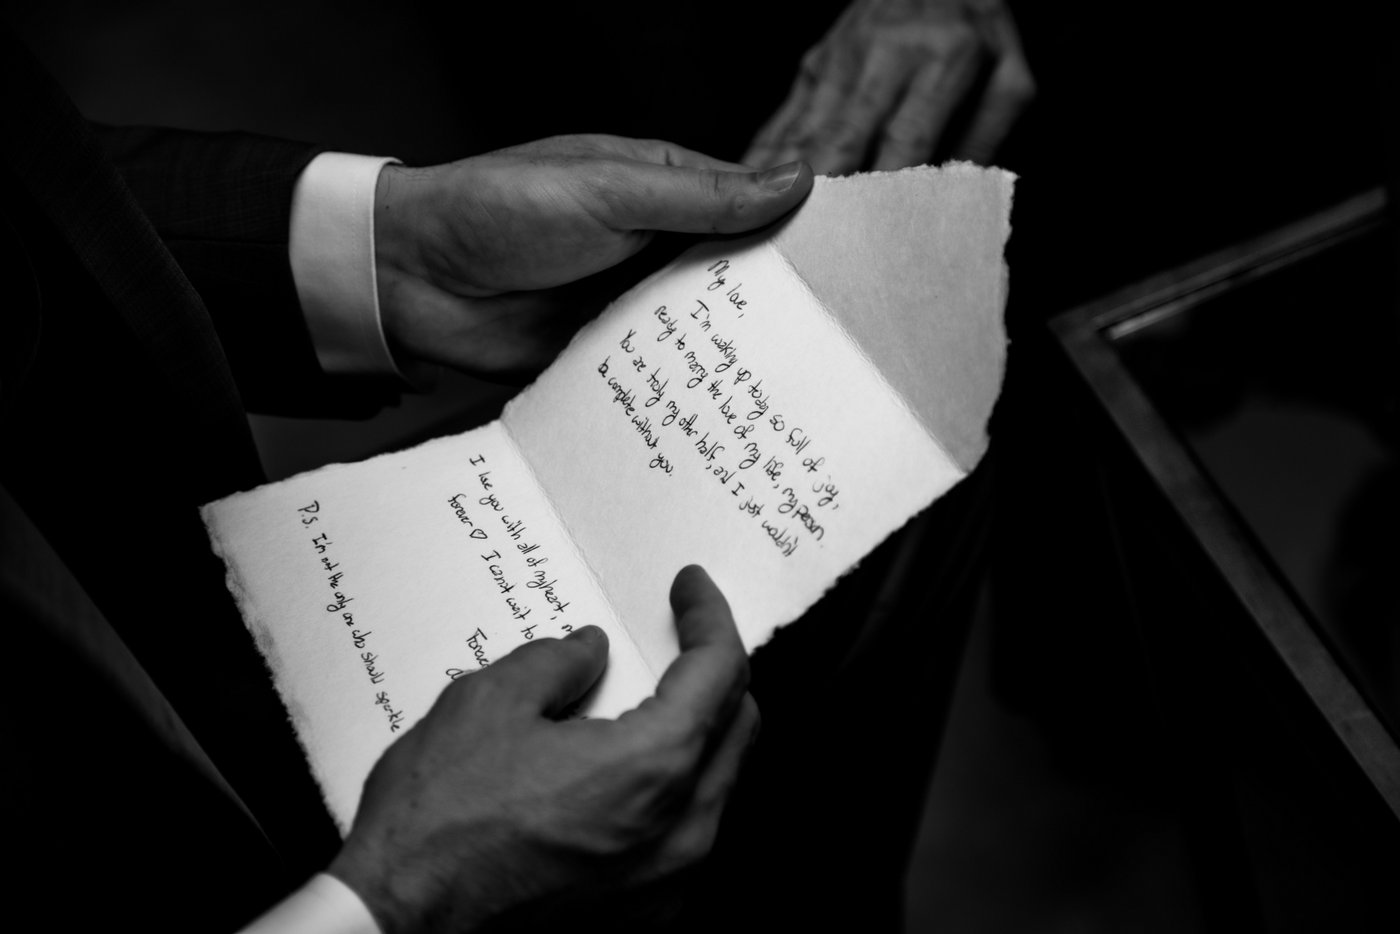 My love,
I'm waking up today so full of joy,
ready to marry the love of my life, my person.
You are truly my other half, and I just wouldn't
be complete without you.
I love you with all of my heart,
forever ♡ I cannot wait to
Forever
P.S. I'm not the only one who should sparkle